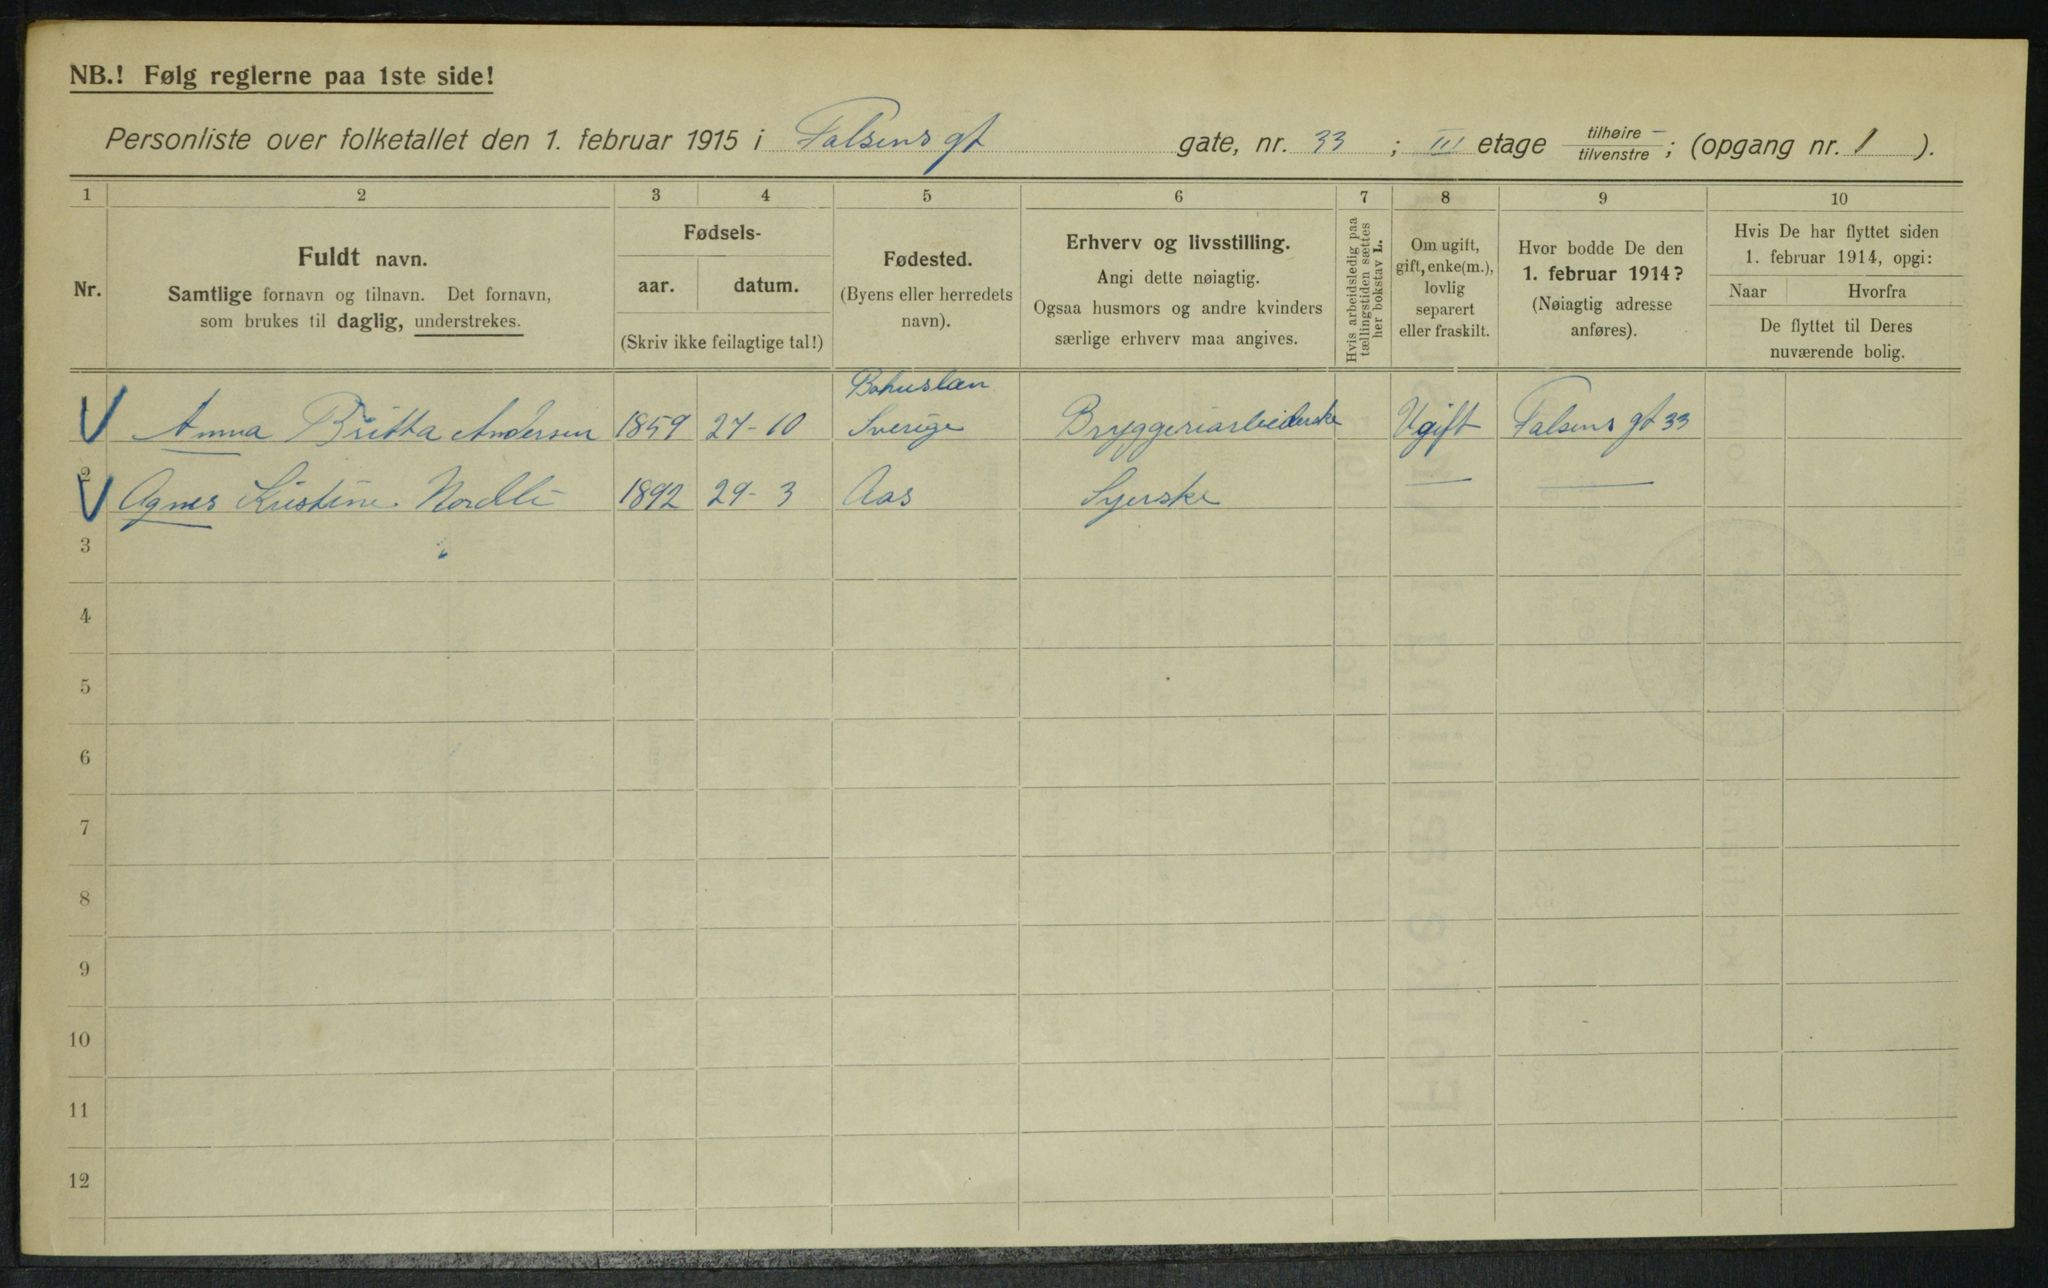 NB.! Følg reglerne paa 1ste side!
Personliste over folketallet den 1. februar 1915 i Falsens gt gate, nr. 33 ; III etage tilhøire – / tilvenstre ; (opgang nr. 1 ).
1 2 3 4 5 6 7 8 9 10
Nr.
Fuldt navn.
Samtlige fornavn og tilnavn. Det fornavn,
som brukes til daglig, understrekes.
Fødsels-
aar. datum.
(Skriv ikke feilagtige tal!)
Fødested.
(Byens eller herredets
navn).
Erhverv og livsstilling.
Angi dette nøiagtig.
Ogsaa husmors og andre kvinders
særlige erhverv maa angives.
Hvis arbeidsledig paa
tællingstiden sættes
her bokstav L.
Om ugift,
gift, enke(m.),
lovlig
separert
eller fraskilt.
Hvor bodde De den
1. februar 1914?
(Nøiagtig adresse
anføres).
Hvis De har flyttet siden
1. februar 1914, opgi:
Naar Hvorfra
De flyttet til Deres
nuværende bolig.
Bohuslan
Anna Britta Andersen 1859 27-10 Sverige Bryggeriarbeiderske Ugift Falsens gt 33
2 Agnes Kristine Nordli 1892 29-3 Aas Syerske — —
3
4
5
6
7
8
9
10
11
12